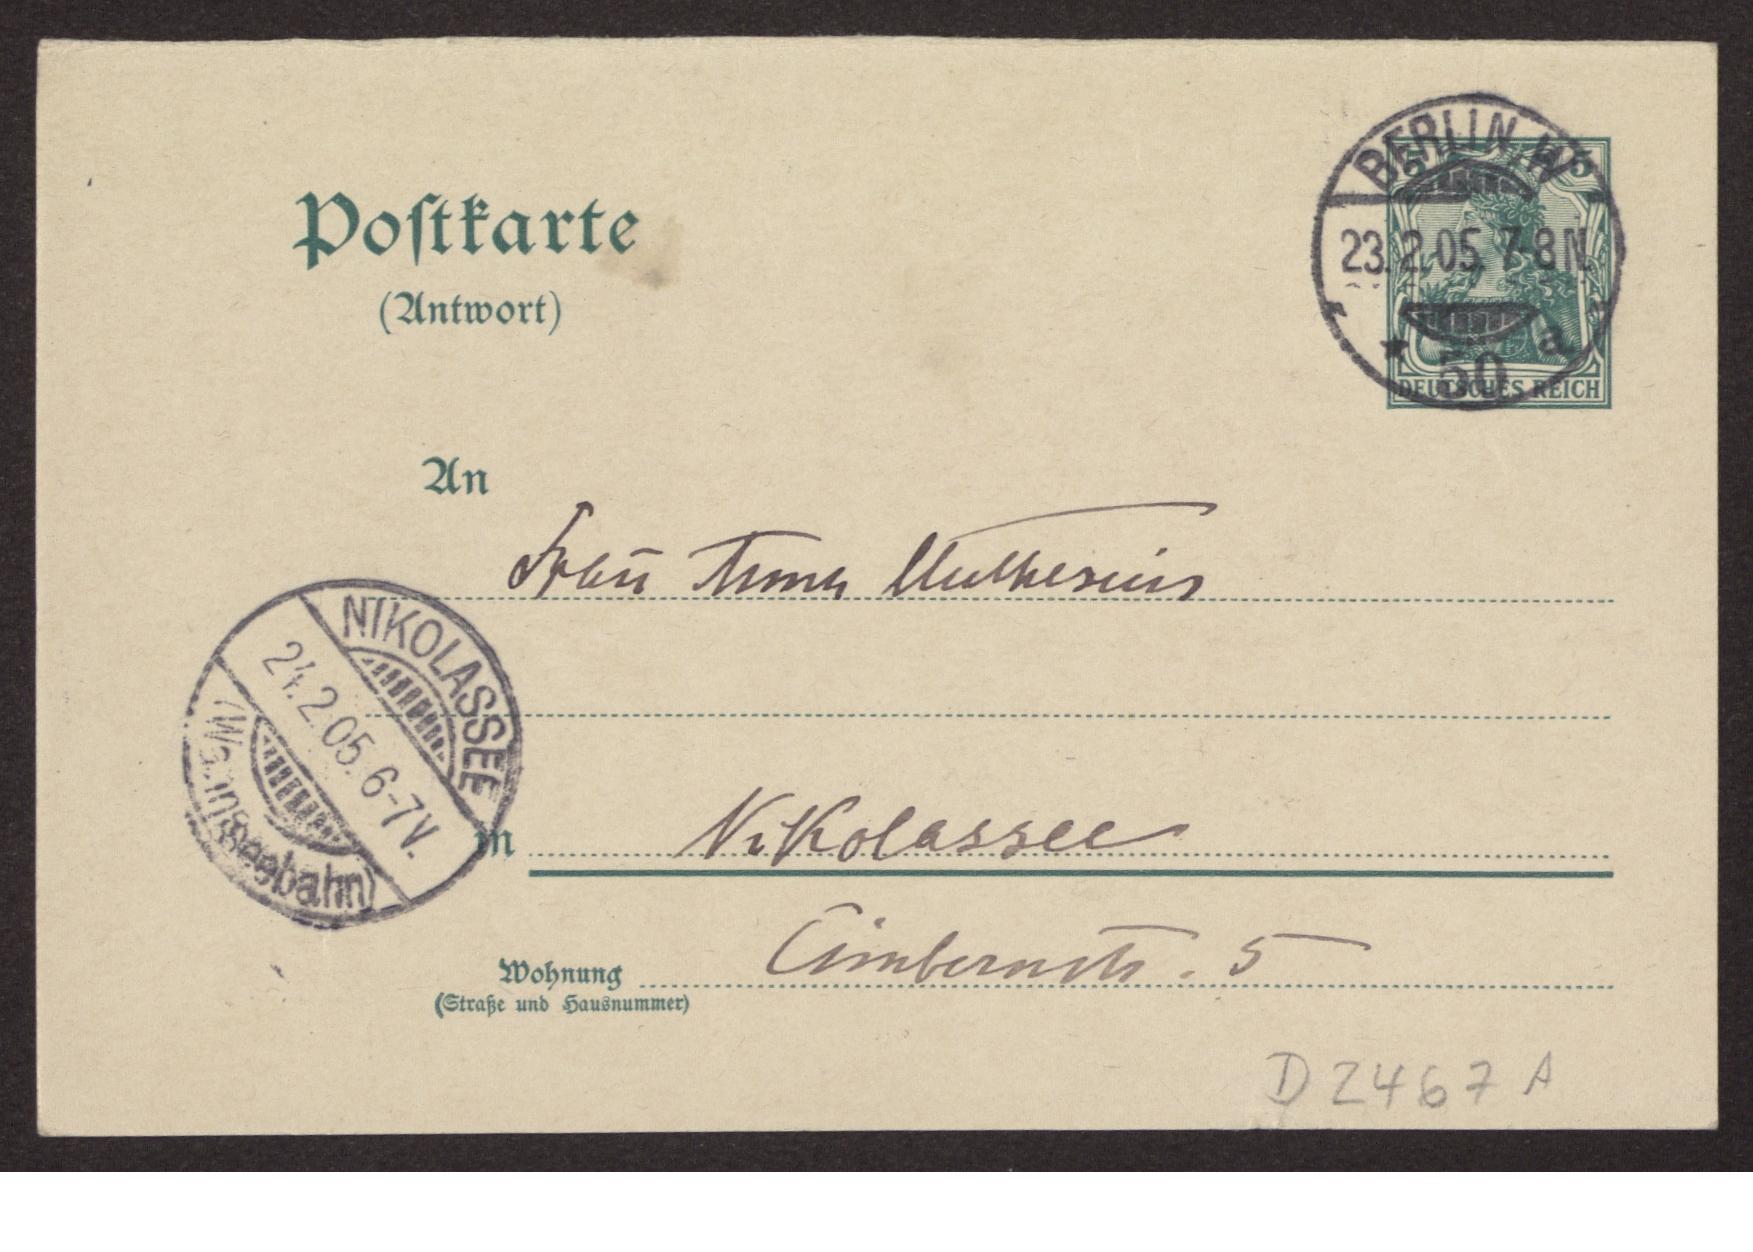 Postkarte
(Antwort)
BERLIN.W
5 5
23.2.05.7-8N.
* 50 a
DEUTSCHES REICH
An
Frau Anna Muthesius
NIKOLASSEE
24.2.05.6-7V.
(Wannseebahn)
in Nikolassee
Wohnung Cimbernstr. 5
(Straße und Hausnummer)
D 2467 A